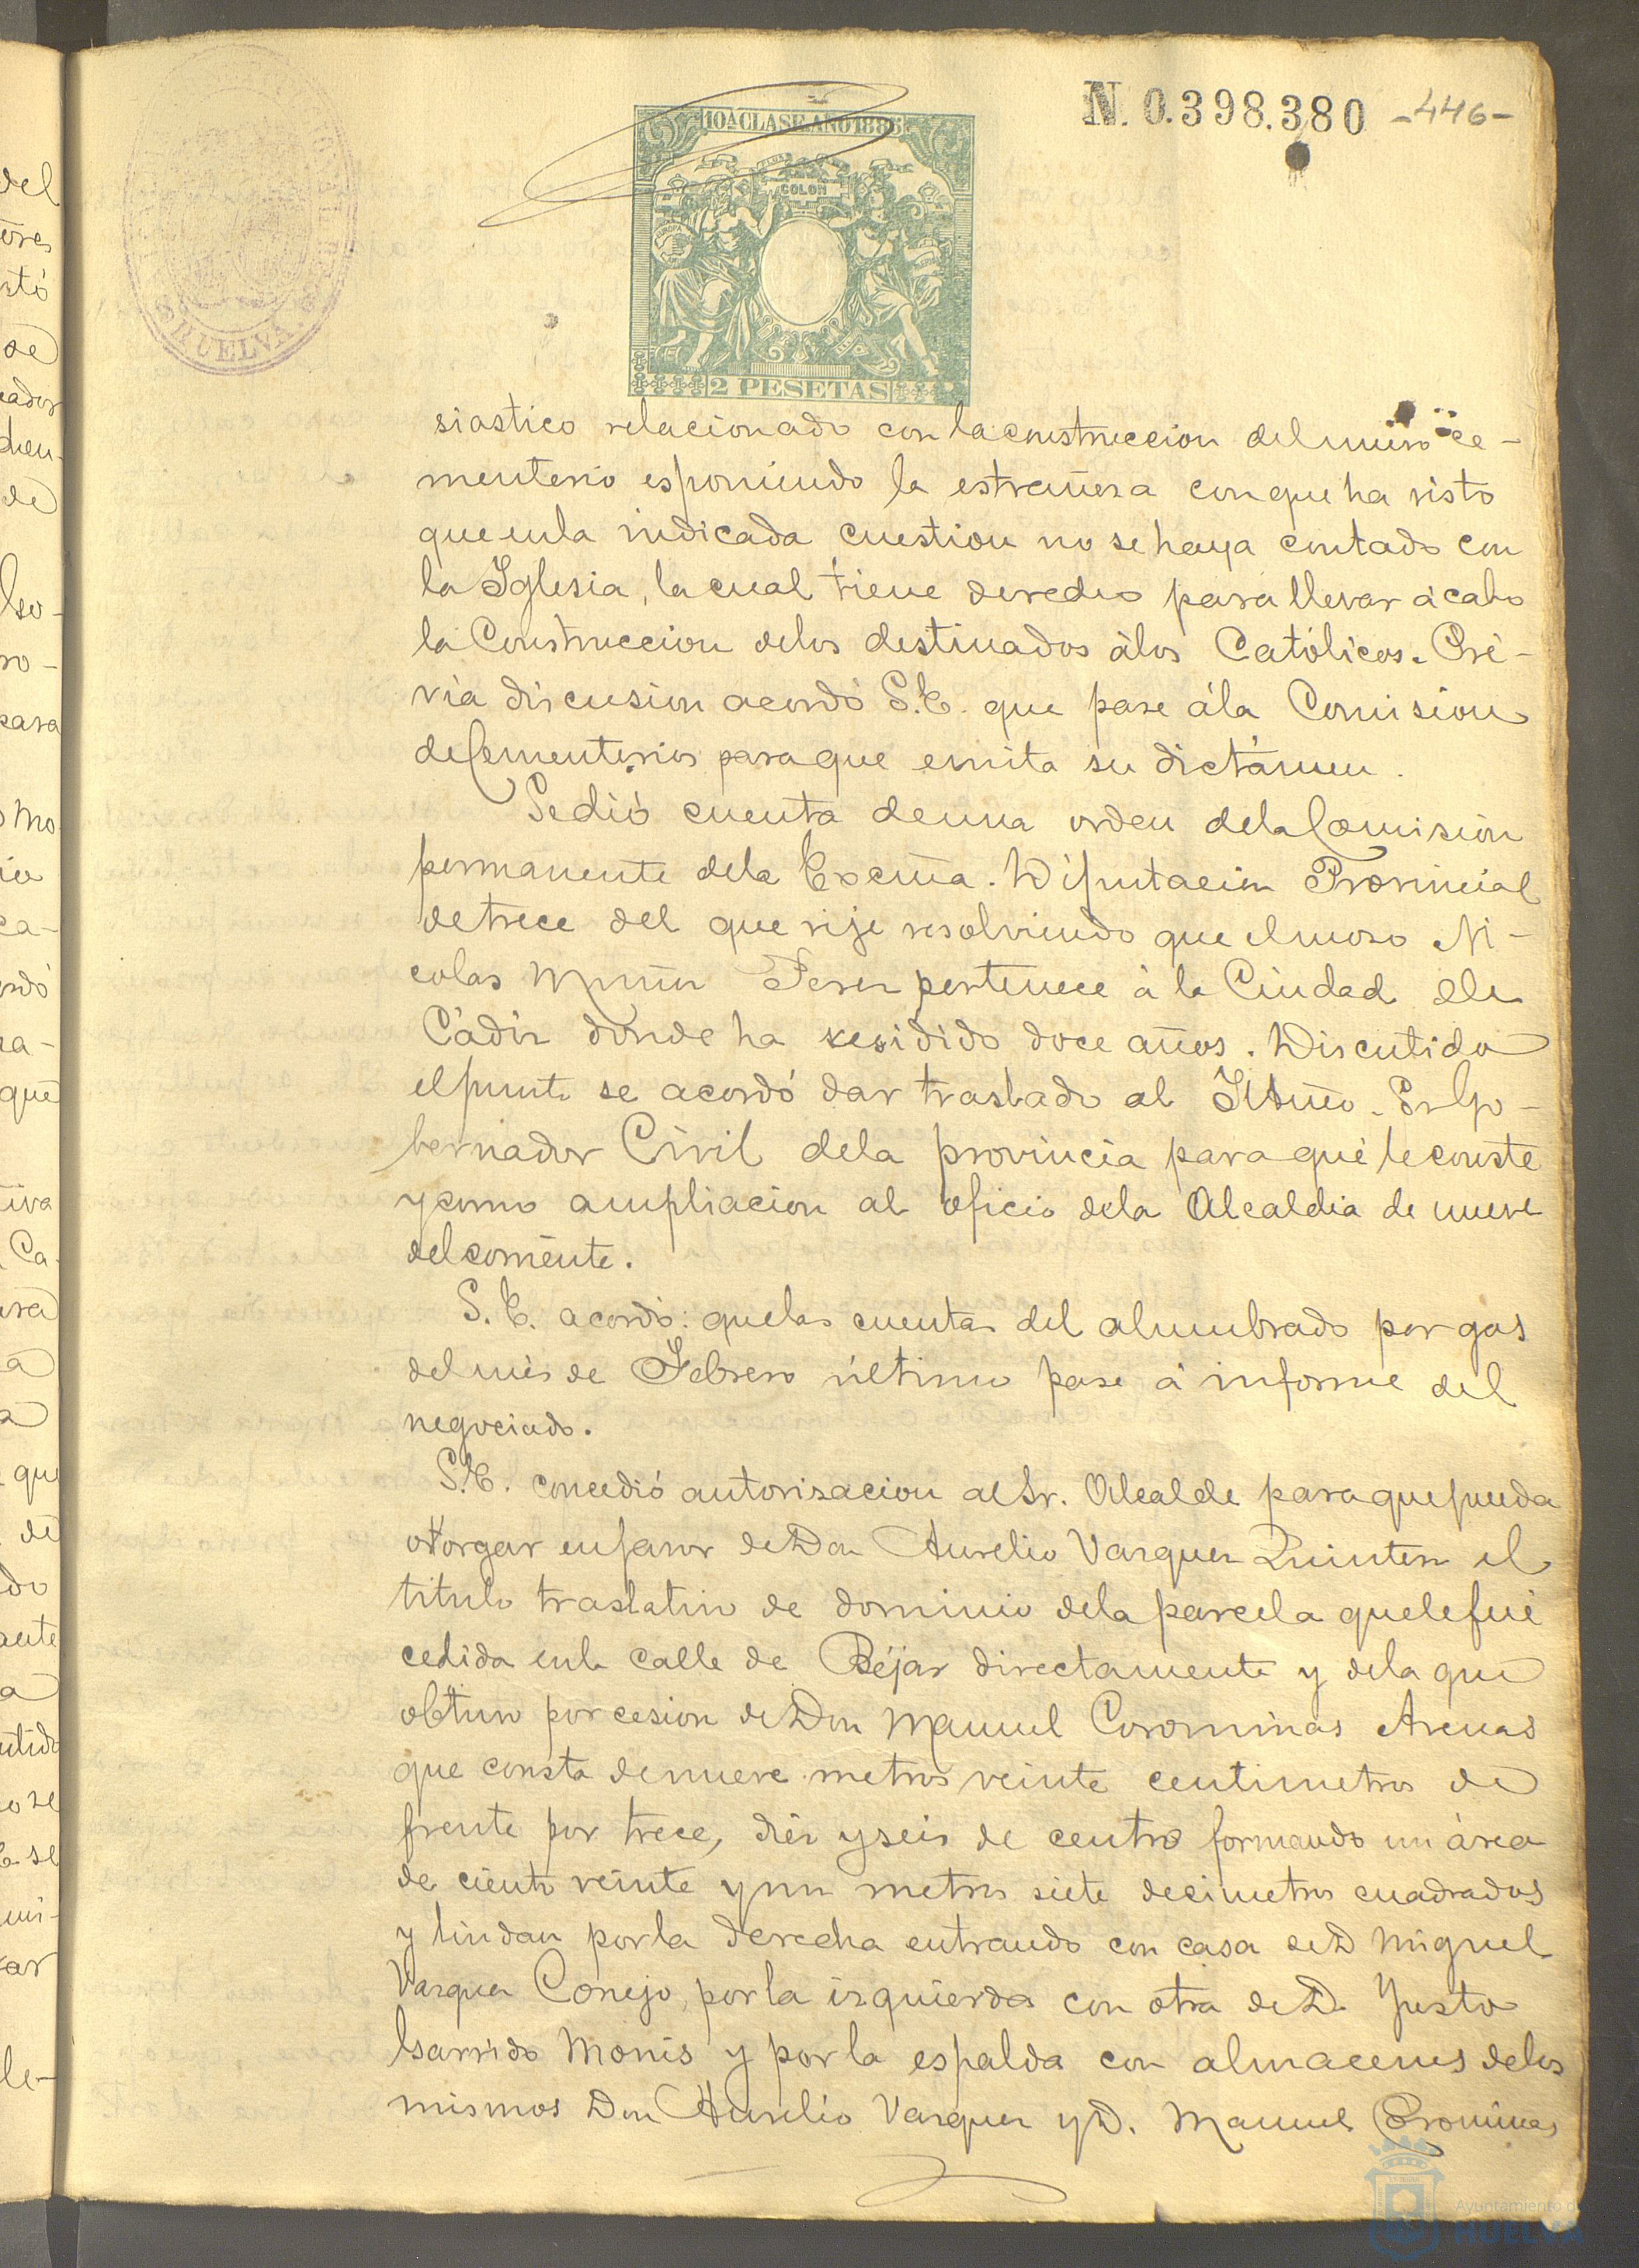 N. 0.398.380 -446-
10ª CLASE. AÑO 1886
COLON
EUROPA
2 PESETAS
HUELVA
siastico relacionado con la construccion del nuevo ce-
menterio esponiendo la estrañeza con que ha visto
que en la indicada cuestion no se haya contado con
la Iglesia, la cual tiene derecho para llevar á cabo
la Construccion de los destinados á los Católicos. Pré-
via discusion acordó S.E. que pase á la Comision
de Cementerios para que emita su dictámen.
Se dió cuenta de una orden de la Comision
permanente de la Excma. Diputacion Provincial
de trece del que rije resolviendo que el mozo Ni-
colas Muñoz Perez pertenece á la Ciudad de
Cádiz donde ha residido doce años. Discutido
el punto se acordó dar traslado al Iltmo. Sr Go-
bernador Civil de la provincia para que le conste
y como ampliacion al oficio de la Alcaldia de nueve
del corriente.
S. E. acordó: que las cuentas del alumbrado por gas
del més de Febrero último pase á informe del
negociado.
S.E. concedió autorizacion al Sr. Alcalde para que pueda
otorgar en favor de Don Aurelio Vazquez Quintero el
titulo traslativo de dominio de la parcela que le fué
cedida en la calle de Béjar directamente y de la que
obtuvo por cesion de Don Manuel Corominas Arenas
que consta de nueve metros veinte centimetros de
frente por trece, diéz y seis de centro formando un área
de ciento veinte y un metros siete decimetros cuadrados
y lindan por la derecha entrando con casa de D Miguel
Vazquez Conejo, por la izquierda con otra de D. Justo
Garrido Monis y por la espalda con almacenes de los
mismos Don Aurelio Vazquez y D. Manuel Corominas
Ayuntamiento de
HUELVA